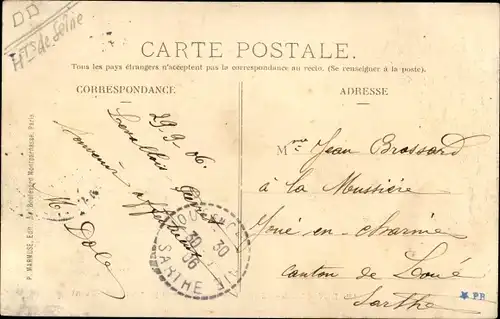 DD
Hts de Seine
CARTE POSTALE.
Tous les pays étrangers n'acceptent pas la correspondance au recto. (Se renseigner à la poste).
CORRESPONDANCE
ADRESSE
29-9-06.
Levallois-Perret
Souvenir affectueux
M. Dola
Mme Jean Brossard
à la Mussière
Joué-en-Charnie
Canton de Loué
Sarthe
JOUÉ-EN-CHARNIE
30 30
06
SARTHE
P. MARMUSE, Edit.
Boulevard Montparnasse, Paris
PR